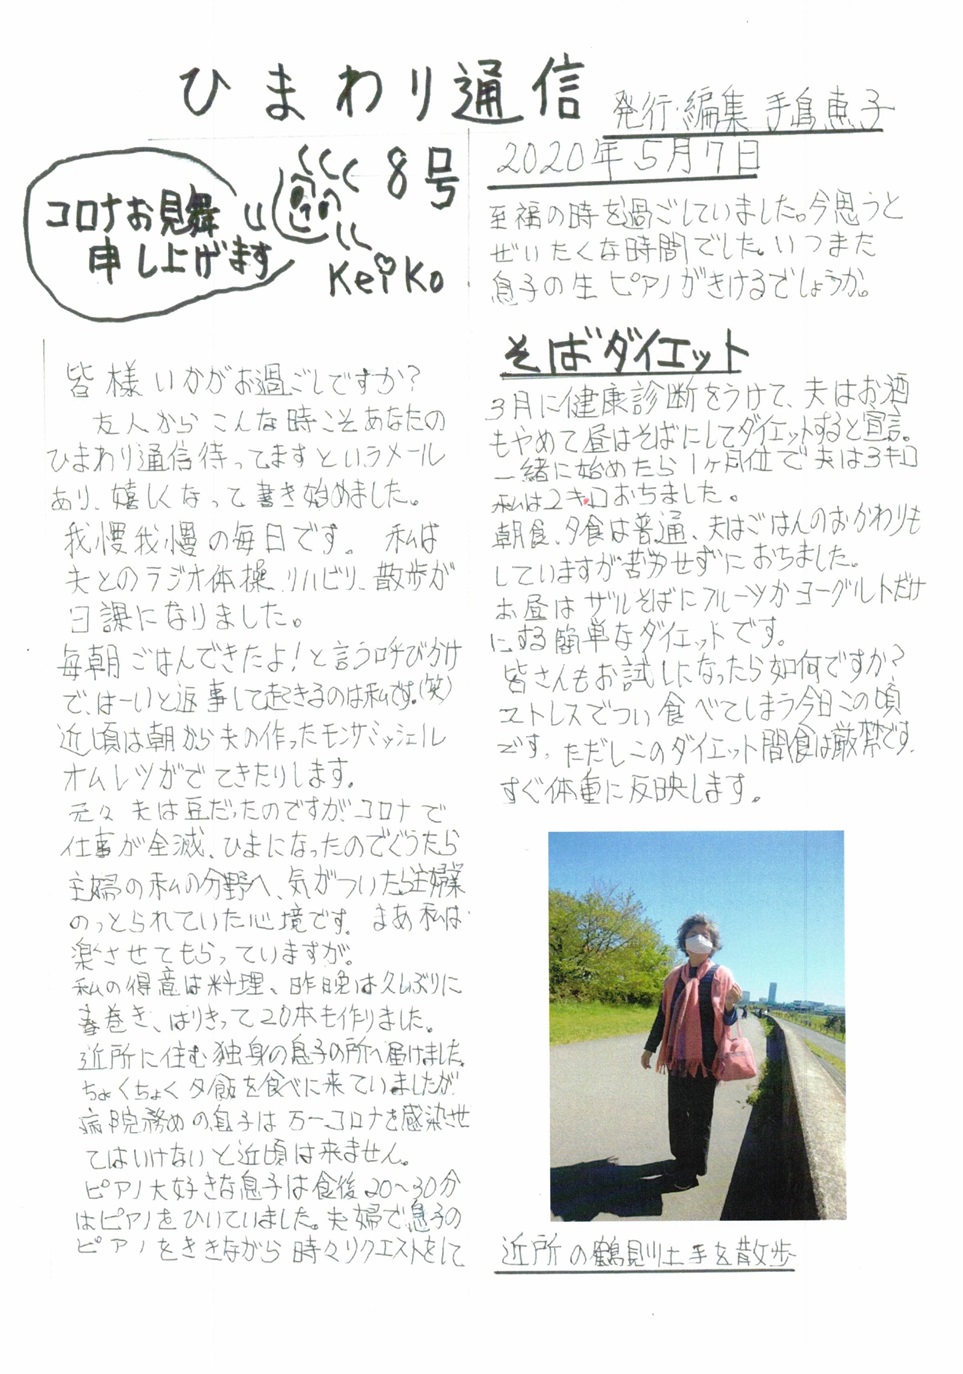 ひまわり通信
発行・編集 手島恵子
8号
2020年5月7日
コロナお見舞
申し上げます
Keiko
皆様いかがお過ごしですか？
友人からこんな時こそあなたの
ひまわり通信待ってますというメール
あり、嬉しくなって書き始めました。
我慢我慢の毎日です。私は
夫とのラジオ体操、リハビリ、散歩が
日課になりました。
毎朝ごはんできたよ！と言う呼びかけ
で、はーいと返事して起きるのは私です。(笑)
近頃は朝から夫の作ったモンサミッシェル
オムレツがでてきたりします。
元々夫は豆だったのですが、コロナで
仕事が全滅、ひまになったのでぐうたら
主婦の私の分野へ、気がついたら主婦業
のっとられていた心境です。まあ私は
楽させてもらっていますが。
私の得意は料理、昨晩は久しぶりに
春巻き、はりきって20本も作りました。
近所に住む独身の息子の所へ届けました。
ちょくちょく夕飯を食べに来ていましたが
病院務めの息子は万一コロナを感染せ
てはいけないと近頃は来ません。
ピアノ大好きな息子は食後20〜30分
はピアノをひいていました。夫婦で息子の
ピアノをききながら時々リクエストをして
至福の時を過ごしていました。今思うと
ぜいたくな時間でした。いつまた
息子の生ピアノがきけるでしょうか。
そばダイエット
3月に健康診断をうけて、夫はお酒
もやめて昼はそばにしてダイエットすると宣言。
一緒に始めたら1ヶ月位で夫は3キロ
私は2キロおちました。
朝食、夕食は普通、夫はごはんのおかわりも
していますが苦労せずにおちました。
お昼はザルそばにフルーツかヨーグルトだけ
にする簡単なダイエットです。
皆さんもお試しになったら如何ですか？
ストレスでつい食べてしまう今日この頃
です。ただしこのダイエット間食は厳禁です。
すぐ体重に反映します。
近所の鶴見川土手を散歩